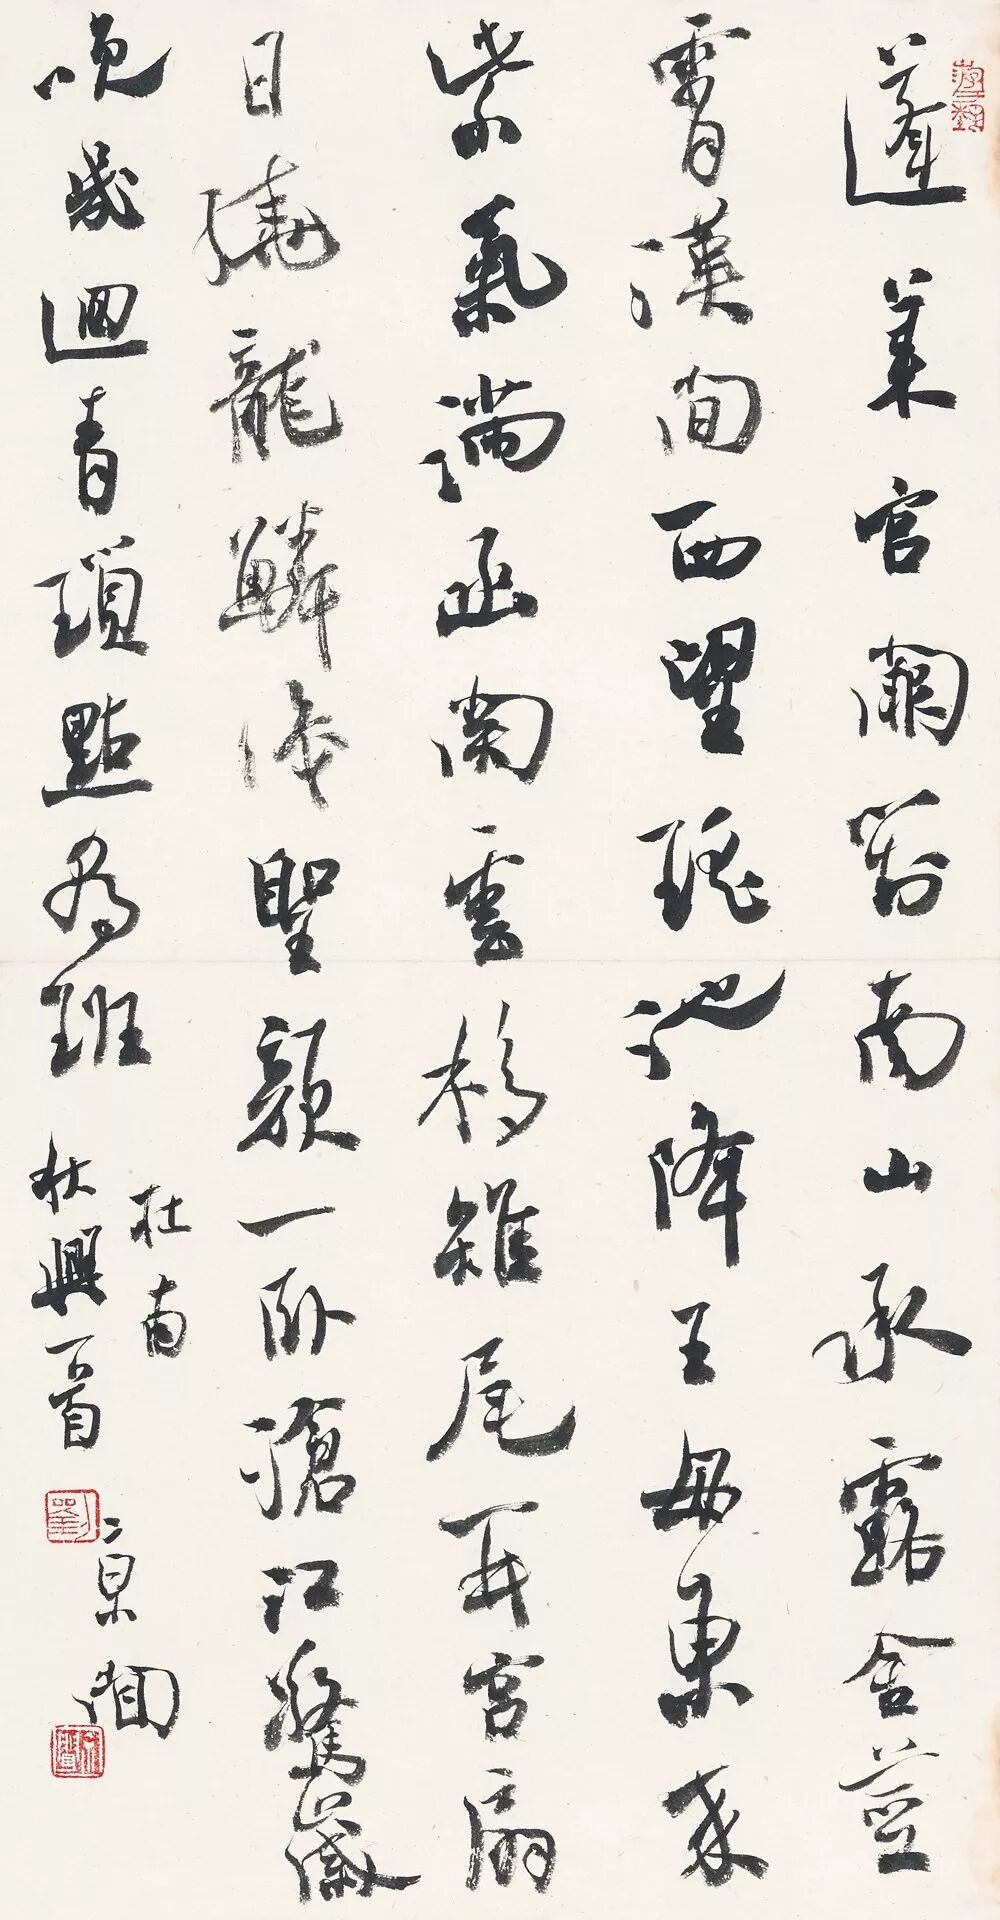 蓬莱宫闕對南山承露金莖
霄漢間西望瑶池降王母東来
紫氣滿函關雲移雉尾開宫扇
日繞龍鱗識聖顔一卧滄江驚歲
晚幾迴青瑣點班
杜甫
秋興一首